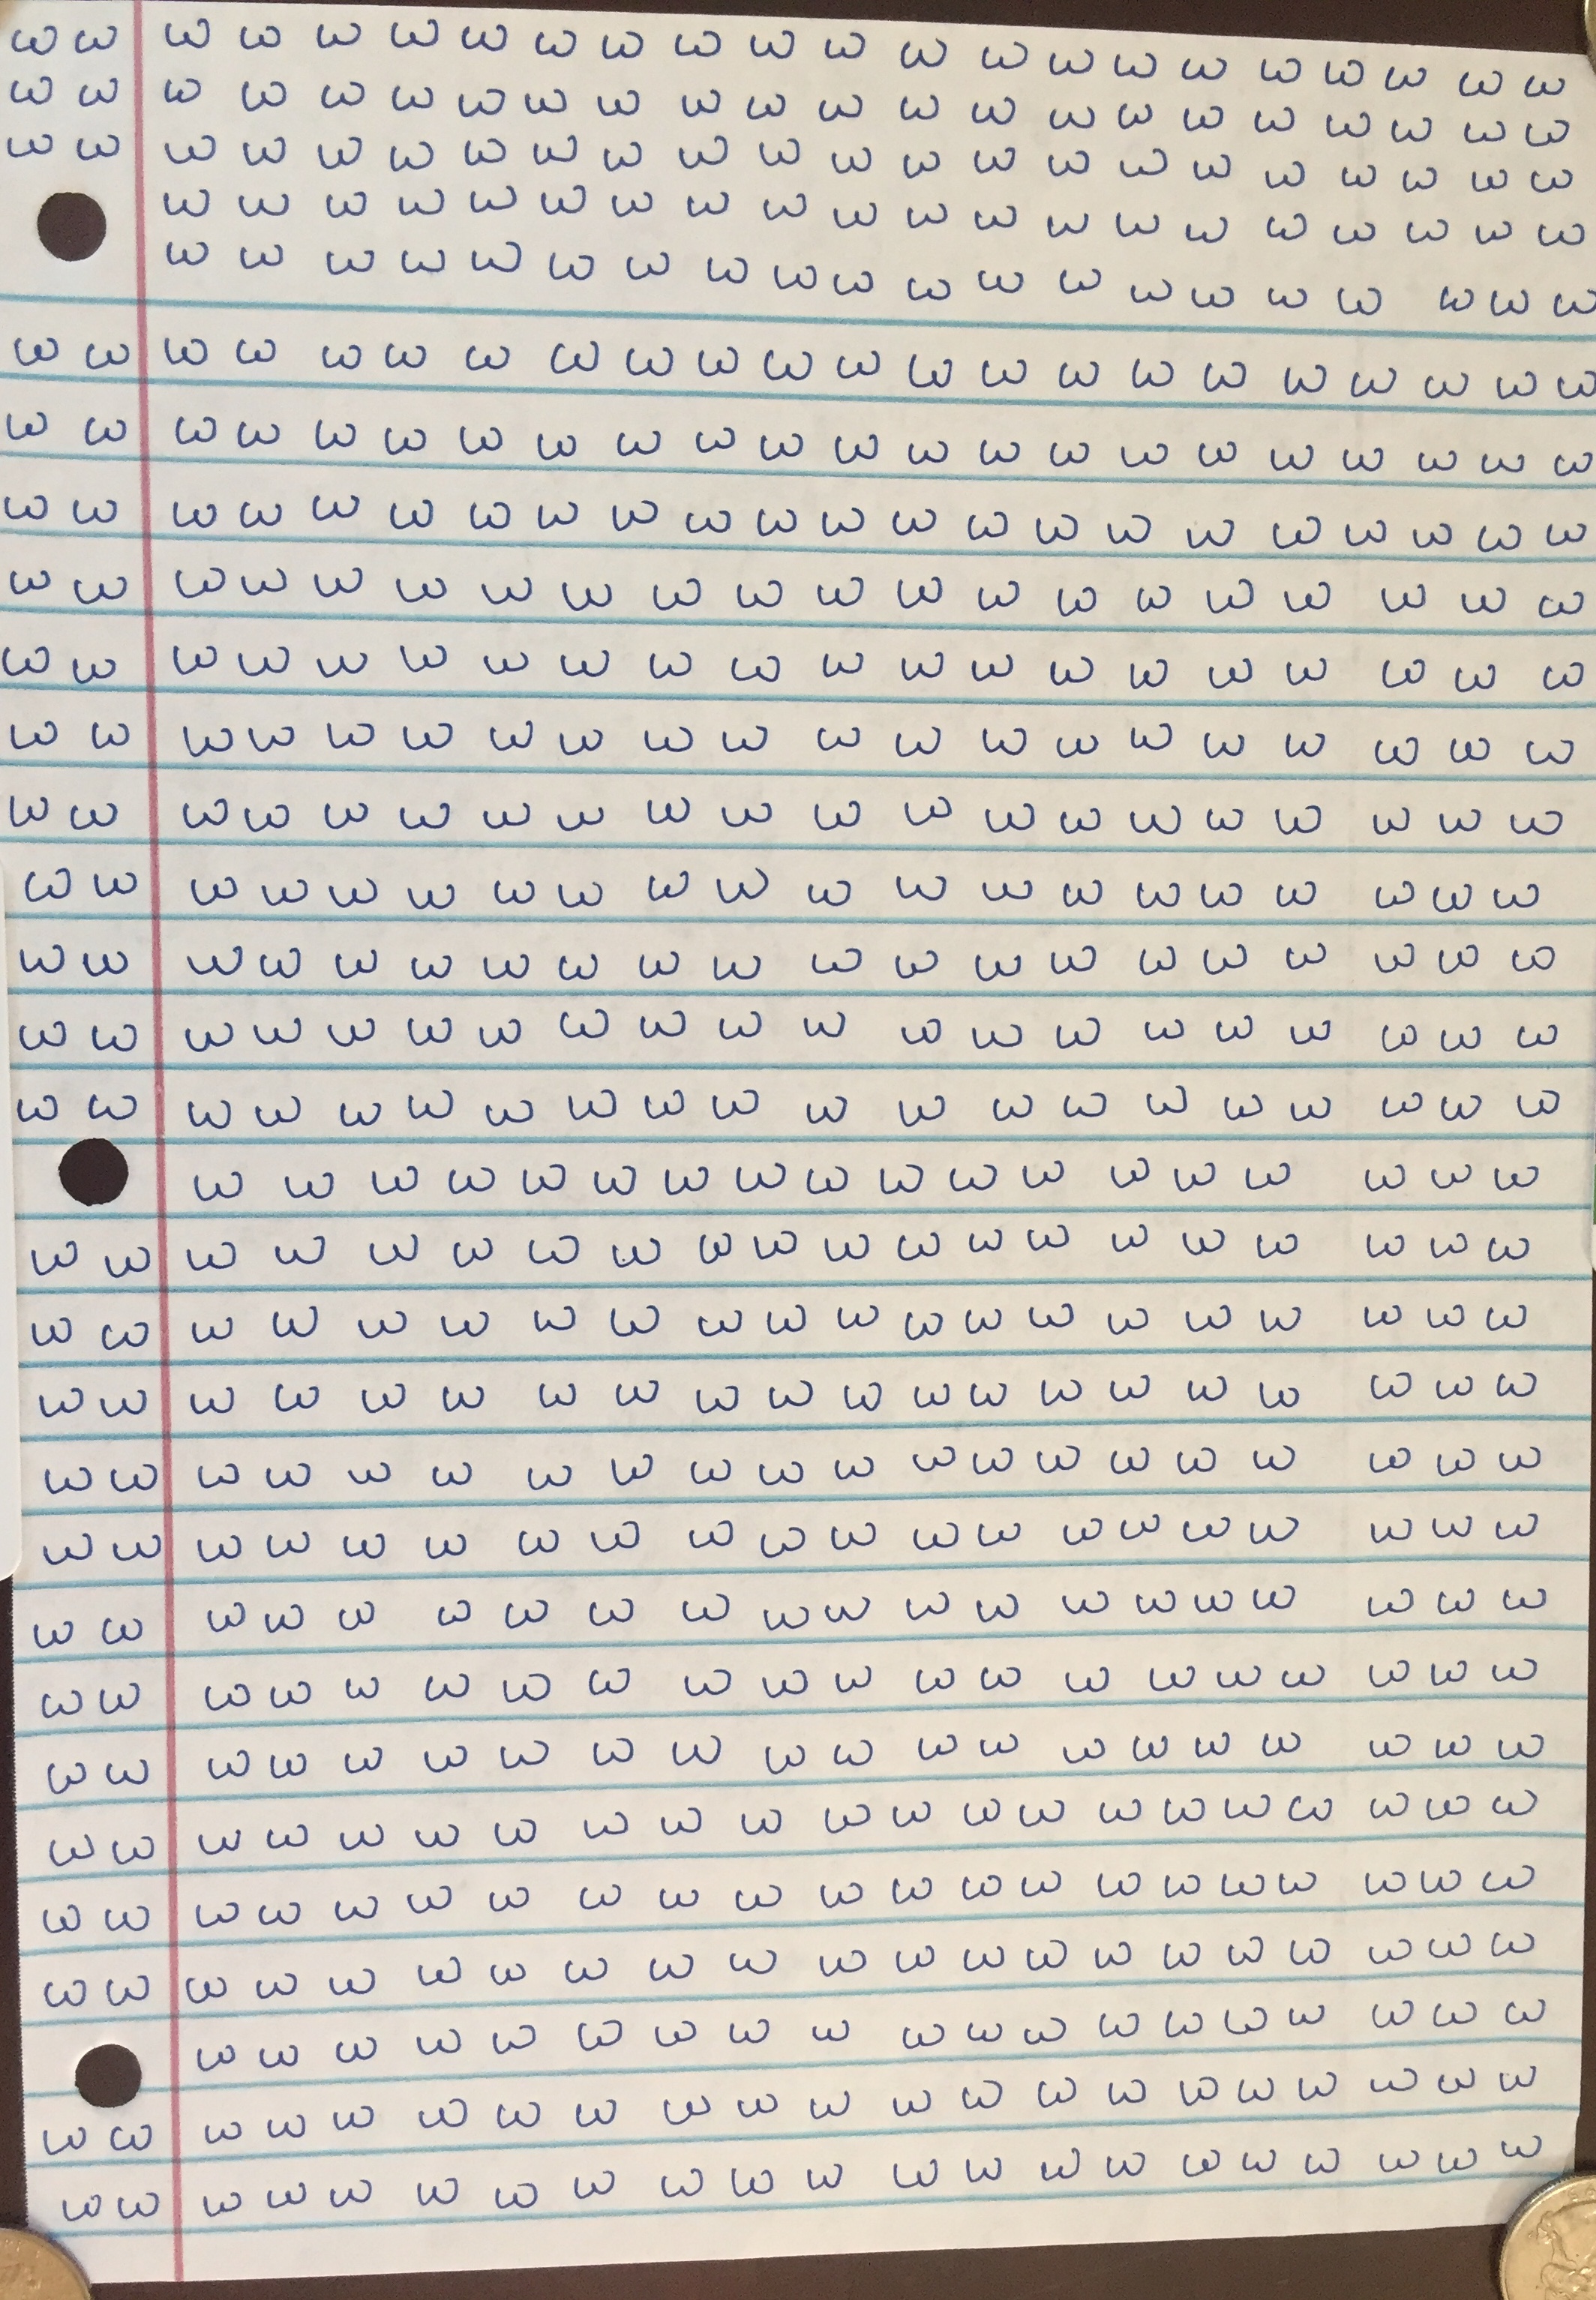 ω ω ω ω ω ω ω ω ω ω ω ω ω ω ω ω ω ω ω ω ω ω
ω ω ω ω ω ω ω ω ω ω ω ω ω ω ω ω ω ω ω ω ω ω
ω ω ω ω ω ω ω ω ω ω ω ω ω ω ω ω ω ω ω ω ω ω
ω ω ω ω ω ω ω ω ω ω ω ω ω ω ω ω ω ω ω ω
ω ω ω ω ω ω ω ω ω ω ω ω ω ω ω ω ω ω ω ω
ω ω ω ω ω ω ω ω ω ω ω ω ω ω ω ω ω ω ω ω ω ω
ω ω ω ω ω ω ω ω ω ω ω ω ω ω ω ω ω ω ω ω ω ω
ω ω ω ω ω ω ω ω ω ω ω ω ω ω ω ω ω ω ω ω ω ω
ω ω ω ω ω ω ω ω ω ω ω ω ω ω ω ω ω ω ω ω
ω ω ω ω ω ω ω ω ω ω ω ω ω ω ω ω ω ω ω ω
ω ω ω ω ω ω ω ω ω ω ω ω ω ω ω ω ω ω ω ω
ω ω ω ω ω ω ω ω ω ω ω ω ω ω ω ω ω ω ω ω
ω ω ω ω ω ω ω ω ω ω ω ω ω ω ω ω ω ω ω ω
ω ω ω ω ω ω ω ω ω ω ω ω ω ω ω ω ω ω ω ω
ω ω ω ω ω ω ω ω ω ω ω ω ω ω ω ω ω ω ω ω
ω ω ω ω ω ω ω ω ω ω ω ω ω ω ω ω ω ω ω ω
ω ω ω ω ω ω ω ω ω ω ω ω ω ω ω ω ω ω
ω ω ω ω ω ω ω ω ω ω ω ω ω ω ω ω ω ω ω ω
ω ω ω ω ω ω ω ω ω ω ω ω ω ω ω ω ω ω ω ω
ω ω ω ω ω ω ω ω ω ω ω ω ω ω ω ω ω ω ω ω
ω ω ω ω ω ω ω ω ω ω ω ω ω ω ω ω ω ω ω ω
ω ω ω ω ω ω ω ω ω ω ω ω ω ω ω ω ω ω ω ω
ω ω ω ω ω ω ω ω ω ω ω ω ω ω ω ω ω ω ω ω
ω ω ω ω ω ω ω ω ω ω ω ω ω ω ω ω ω ω ω ω
ω ω ω ω ω ω ω ω ω ω ω ω ω ω ω ω ω ω ω ω
ω ω ω ω ω ω ω ω ω ω ω ω ω ω ω ω ω ω ω ω ω
ω ω ω ω ω ω ω ω ω ω ω ω ω ω ω ω ω ω ω ω ω
ω ω ω ω ω ω ω ω ω ω ω ω ω ω ω ω ω ω ω ω ω
ω ω ω ω ω ω ω ω ω ω ω ω ω ω ω ω ω ω ω
ω ω ω ω ω ω ω ω ω ω ω ω ω ω ω ω ω ω ω ω ω
ω ω ω ω ω ω ω ω ω ω ω ω ω ω ω ω ω ω ω ω ω